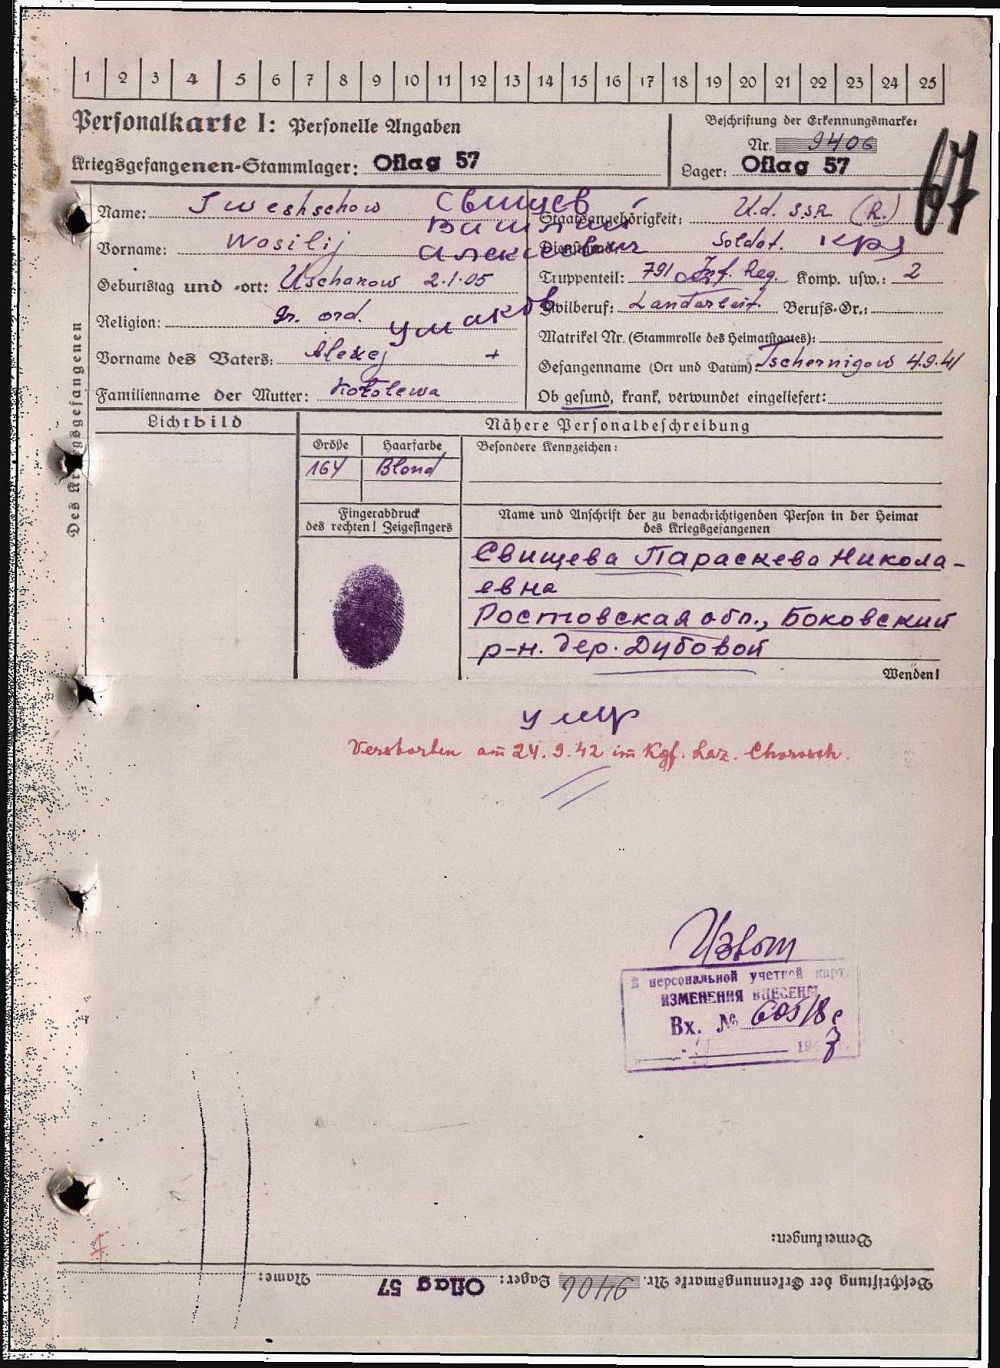 1 2 3 4 5 6 7 8 9 10 11 12 13 14 15 16 17 18 19 20 21 22 23 24 25
Personalkarte I: Personelle Angaben
Kriegsgefangenen-Stammlager: Oflag 57
Beschriftung der Erkennungsmarke:
Nr. 9406
Lager: Oflag 57
67
Des Kriegsgefangenen
Name: Sweshschow
Свищев
Василий
Алексеевич
Vorname: Wasilij
Geburtstag und -ort: Uschakow 2.1.05
Religion: gr. ord.
Ушаков
Vorname des Vaters: Alexej +
Familienname der Mutter: Kotolewa
Staatsangehörigkeit: U.d.S.S.R. (R.)
Dienstgrad: Soldat. кр
Truppenteil: 791 Inf. Reg. Komp. usw.: 2
Zivilberuf: Landarbeit. Berufs-Gr.:
Matrikel Nr. (Stammrolle des Heimatstaates):
Gefangennahme (Ort und Datum): Tschernigow 4.9.41
Ob gesund, krank, verwundet eingeliefert:
Lichtbild
Nähere Personalbeschreibung
Größe Haarfarbe Besondere Kennzeichen:
164 Blond
Fingerabdruck
des rechten! Zeigefingers
Name und Anschrift der zu benachrichtigenden Person in der Heimat
des Kriegsgefangenen
Свищева Параскева Никола-
евна
Ростовская обл., Боковский
р-н. дер. Дубовой
Wenden!
умер
Verstorben am 24.9.42 im Kgf. Laz. Chorosch.
В персональной учетной карт.
ИЗМЕНЕНИЯ ВНЕСЕНЫ
Вх. №
194
Bemerkungen:
Beschriftung der Erkennungsmarke Nr. 9406 Lager: Oflag 57 Name: